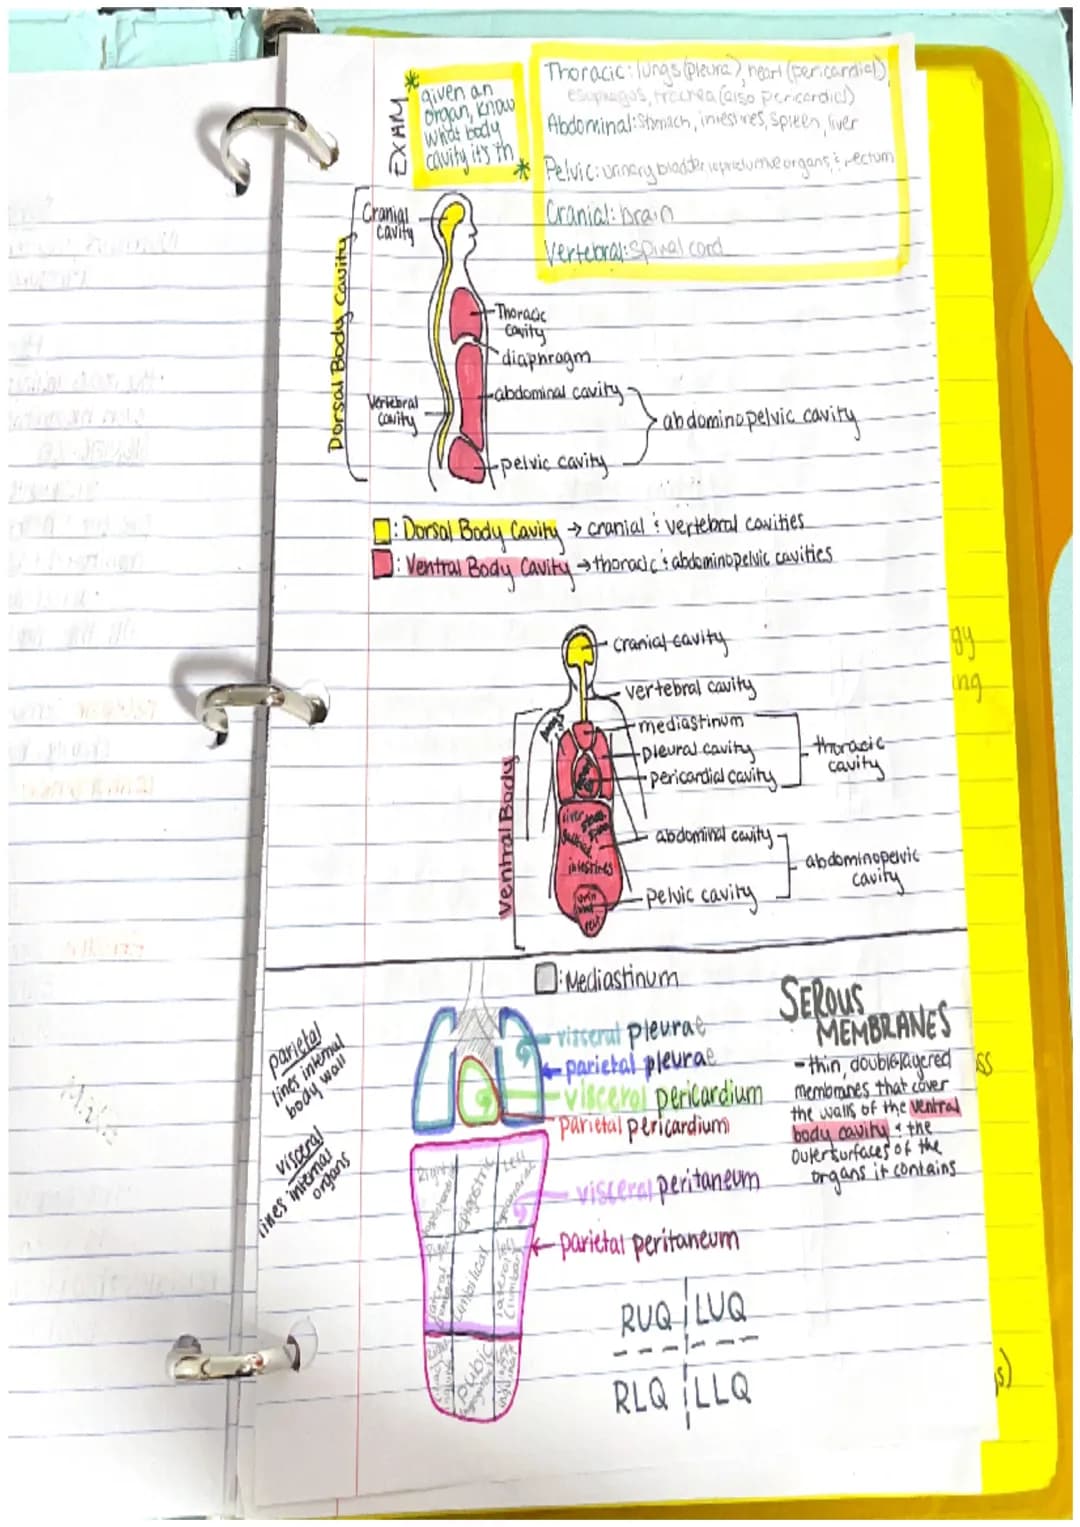 EXAM
* given an
organ, know
what body
cavity it's in *
Thoracic: lungs (pleura), heart (pericardial),
esophagus, trachea (also pericardial)
Abdominal: stomach, intestines, spleen, liver
Pelvic: urinary bladder, reproductive organs, & rectum
Cranial: brain
Vertebral: spinal cord
Dorsal Body Cavity
Cranial
cavity
Thoracic
cavity
diaphragm
Vertebral
cavity
abdominal cavity
abdominopelvic cavity
pelvic cavity
: Dorsal Body Cavity → cranial & vertebral cavities
: Ventral Body Cavity → thoracic & abdominopelvic cavities
Ventral Body
cranial cavity
vertebral cavity
mediastinum
pleural cavity
pericardial cavity
thoracic
cavity
liver
intestines
abdominal cavity
pelvic cavity
abdominopelvic
cavity
: Mediastinum
parietal
lines internal
body wall
visceral
lines internal
organs
visceral pleurae
parietal pleurae
visceral pericardium
parietal pericardium
visceral peritaneum
parietal peritaneum
Right
epigastric
Left
umbilical
left
lateral
(lumbar)
pubic
SEROUS
MEMBRANES
- thin, doublelayered
membranes that cover
the walls of the ventral
body cavity & the
outersurfaces of the
organs it contains
RUQ LUQ
RLQ LLQ